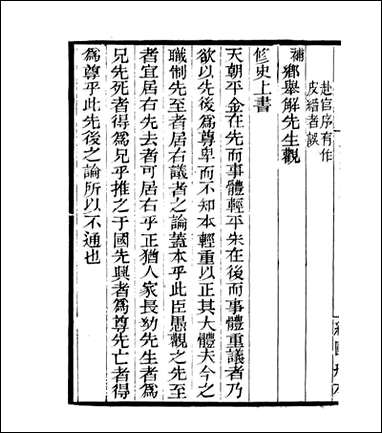 赴官序有作
皮縉者誤
補鄉舉解先生觀
修史上書
天朝平金在先而事體輕平宋在後而事體重議者乃
欲以先後為尊卑而不知本輕重以正其大體夫今之
職制先至者居右議者之論蓋本乎此臣愚觀之先至
者宜居右先去者可居右乎正猶人家長㓜先生者為
兄先死者得為兄乎推之于國先興者為尊先亡者得
為尊乎此先後之論所以不通也